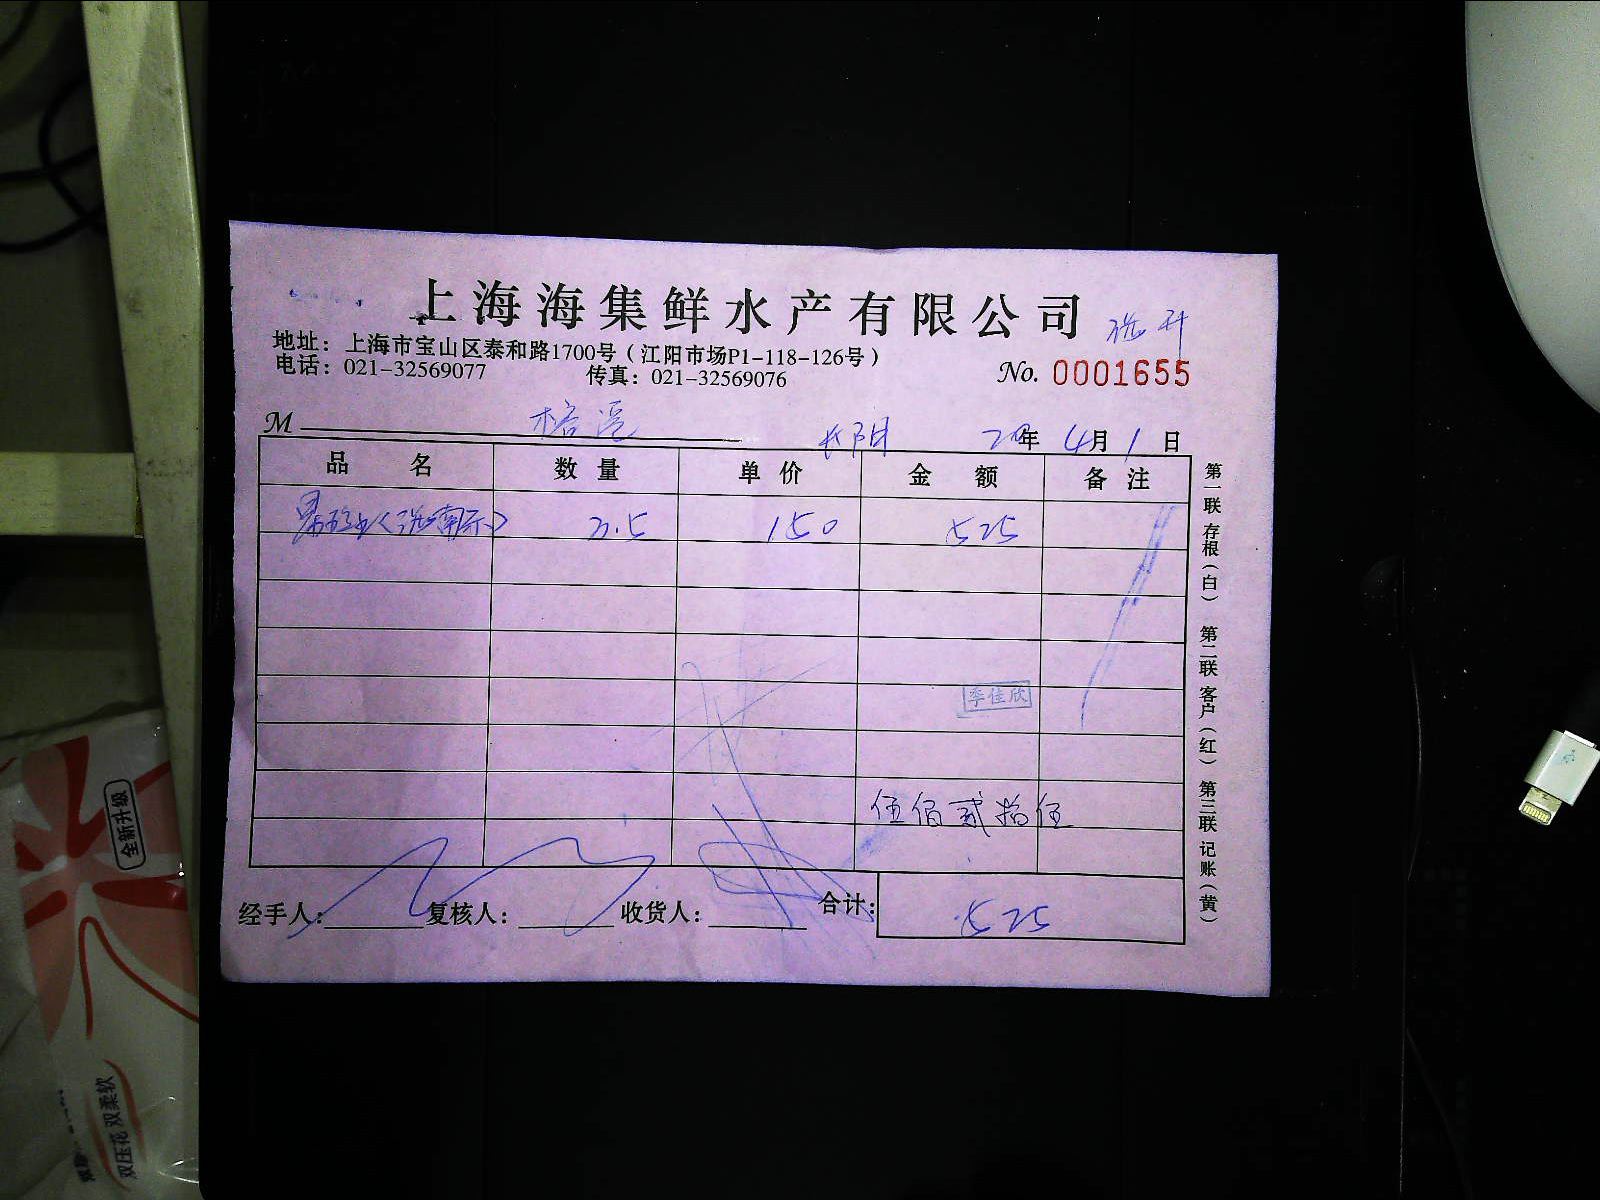 上海海集鲜水产有限公司
地址：上海市宝山区泰和路1700号（江阳市场P1-118-126号）
电话：021-32569077 传真：021-32569076
No. 0001655
M 榕港 长阳 20年 4月 1日
品名 数量 单价 金额 备注
3.5 150 525
李佳欣
伍佰贰拾伍
经手人： 复核人： 收货人： 合计： 525
第一联 存根（白） 第二联 客户（红） 第三联 记账（黄）
全新升级
双压花 双柔软